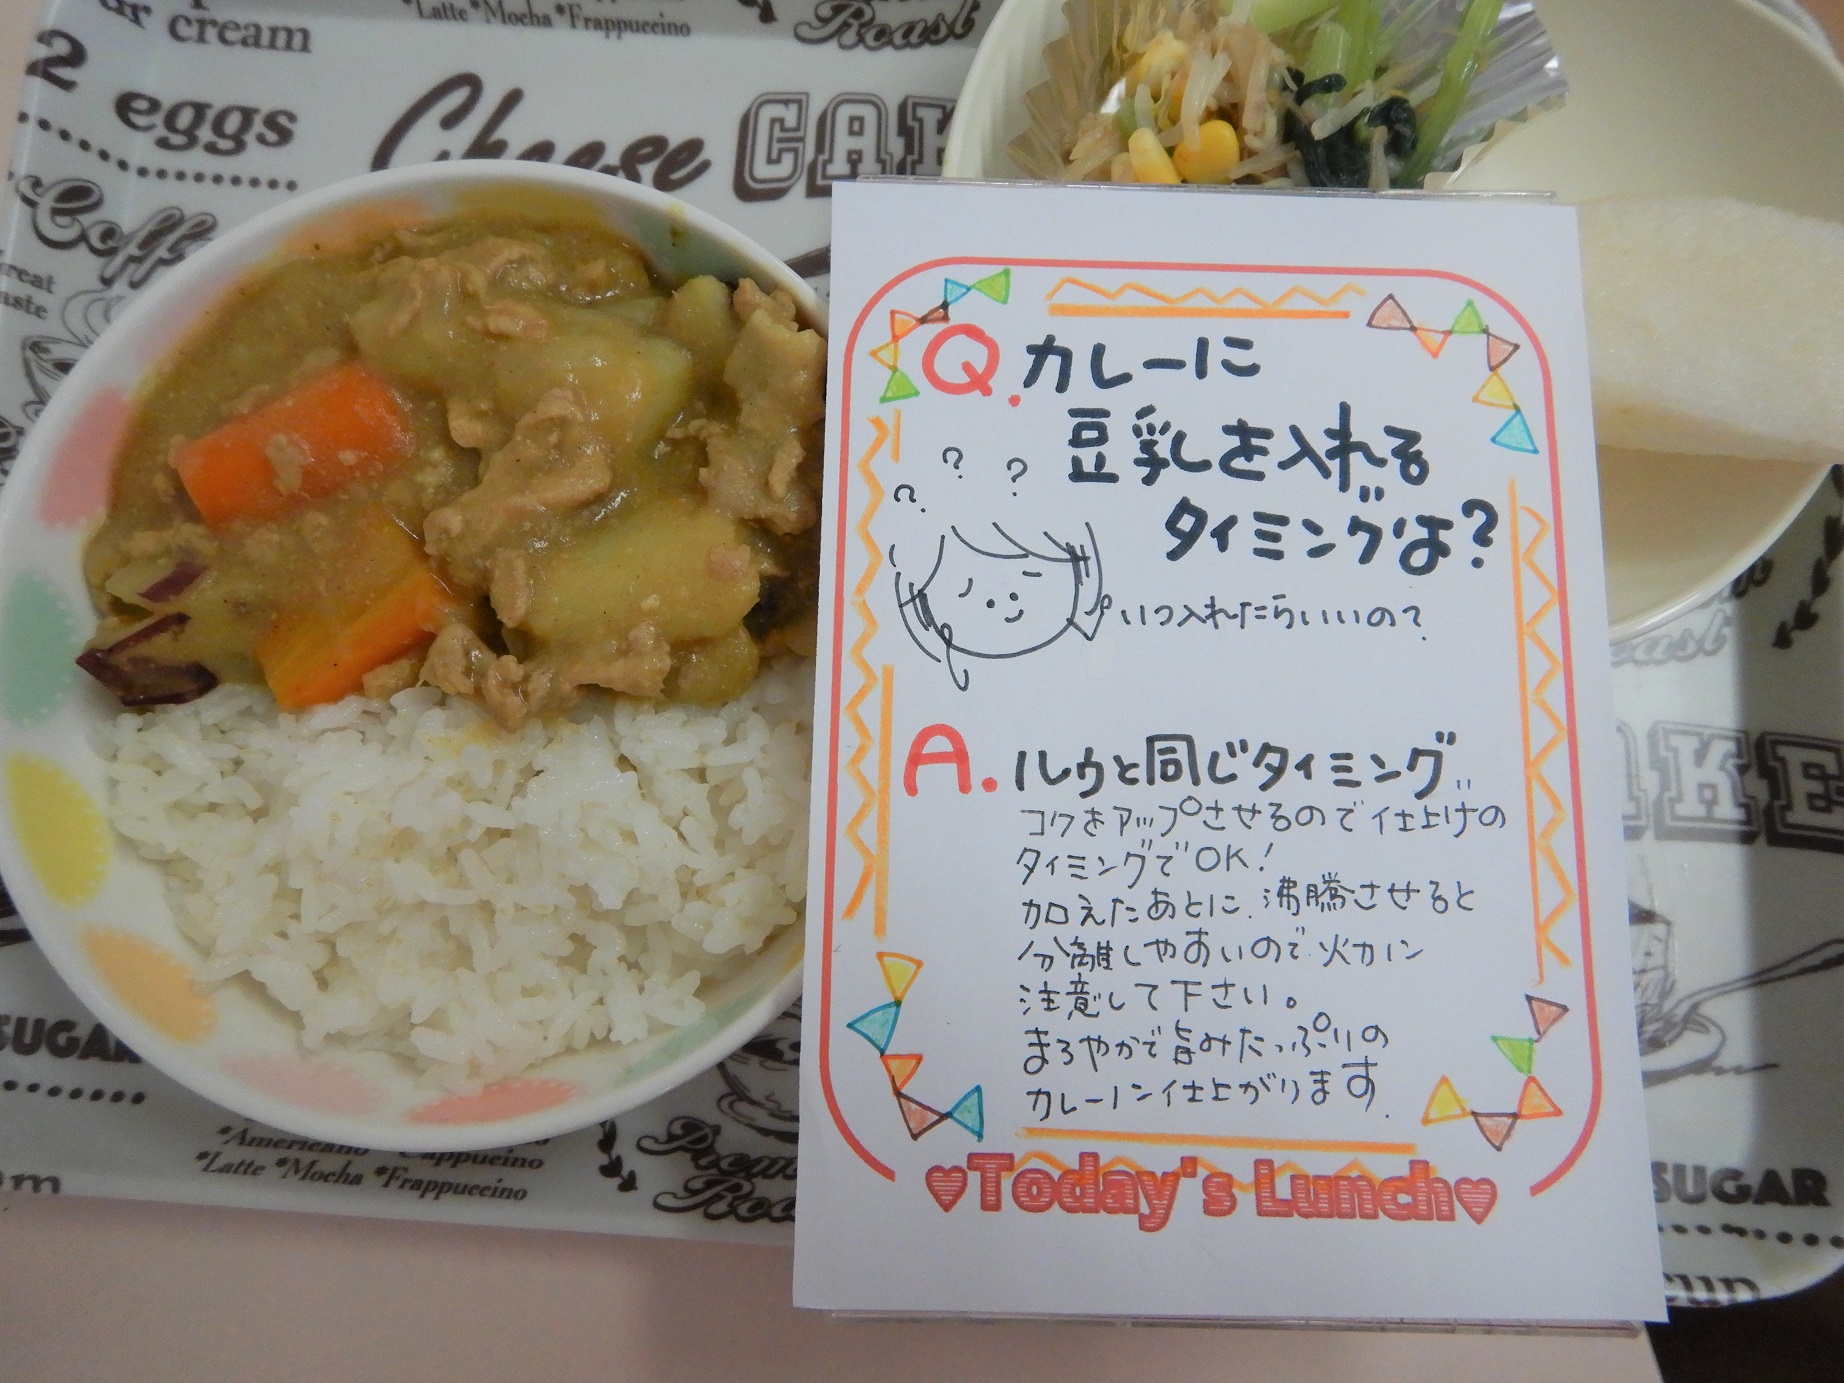 ur cream
2 eggs
*Latte *Mocha *Frappuccino
Roast
Cheese CAK
Coff
reat
aste
Q.カレーに
豆乳しを入れる
タイミングは?
? ? ?
いつ入れたらいいの?
A.ルウと同じタイミング‥
コクをアップさせるので仕上げの
タイミングでOK!
加えたあとに、沸騰させると
分離しやすいので火力に
注意して下さい。
まろやかで旨みたっぷりの
カレーに仕上がります.
♥Today's Lunch♥
oast
AKE
SUGAR
*Americano *Cappucino
*Latte *Mocha *Frappuccino
Prem
Roa
SUGAR
cup